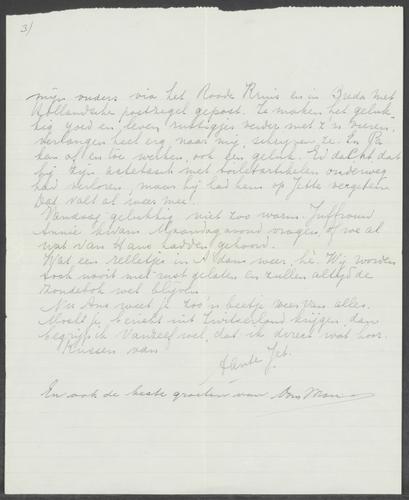 3/
mijn ouders via het Roode Kruis en in Breda met
Hollandsche postzegel gepost. Ze maken het geluk-
kig goed en leven rustigjes verder met z'n vieren,
verlangen heel erg naar mij, schrijven ze. En Pa
kan af en toe werken, ook een geluk. Ed dacht dat
hij zijn tasch met toiletartikelen onderweg
had verloren, maar hij had hem op vergeten.
Dat valt al weer mee.
Vandaag gelukkig niet zoo warm. Juffrouw
Annie kwam Maandagavond vragen, of we al
wat van Hans hadden gehoord.
Wat een relletjes in A'dam weer, hè. Wij worden
toch nooit met rust gelaten en zullen altijd de
zondebok wel blijven.
Nu Ans weet je zoo'n beetje weer van alles.
Mocht je bericht uit Zwitserland krijgen, dan
begrijp ik vanzelf wel, dat ik direct wat hoor.
Kussen van
Tante Jet.
En ook de beste groeten van Oom